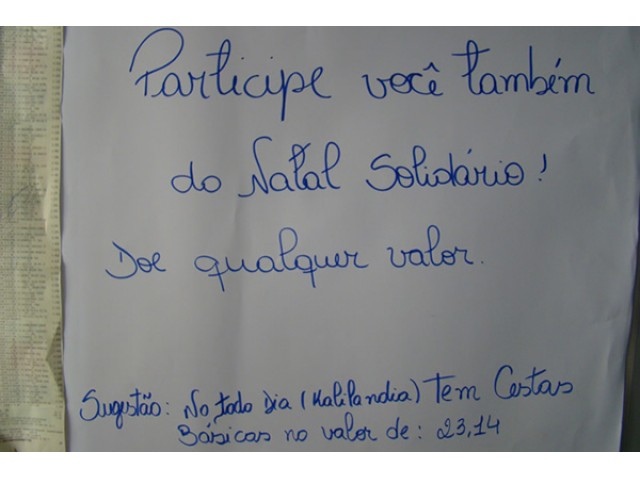 Participe você também
do Natal Solidário!
Doe qualquer valor.
Sugestão: No todo dia (Kalilandia) Tem Cestas
Básicas no valor de: 23,14